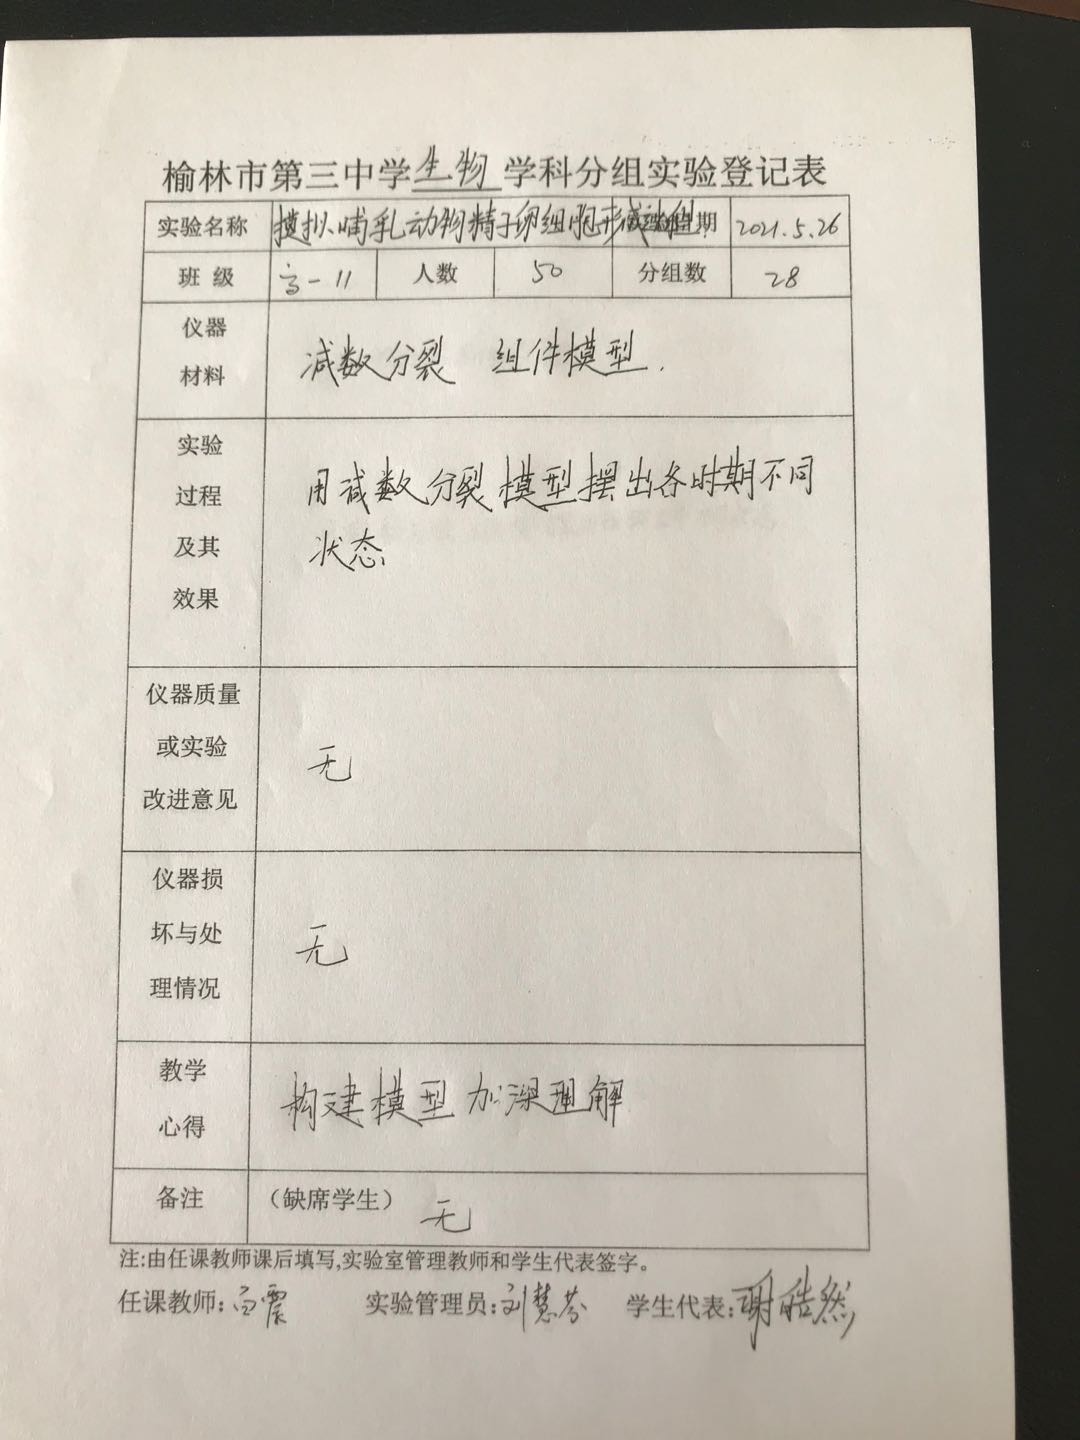 榆林市第三中学生物学科分组实验登记表
实验名称 模拟哺乳动物精子卵细胞形成过程 日期 2021.5.26
班级 高一11 人数 50 分组数 28
仪器
材料
减数分裂 组件模型.
实验
过程
及其
效果
用减数分裂模型摆出各时期不同
状态
仪器质量
或实验
改进意见
无
仪器损
坏与处
理情况
无
教学
心得
构建模型 加深理解
备注 (缺席学生) 无
注:由任课教师课后填写,实验室管理教师和学生代表签字。
任课教师:白震 实验管理员:刘慧芬 学生代表:谢皓然